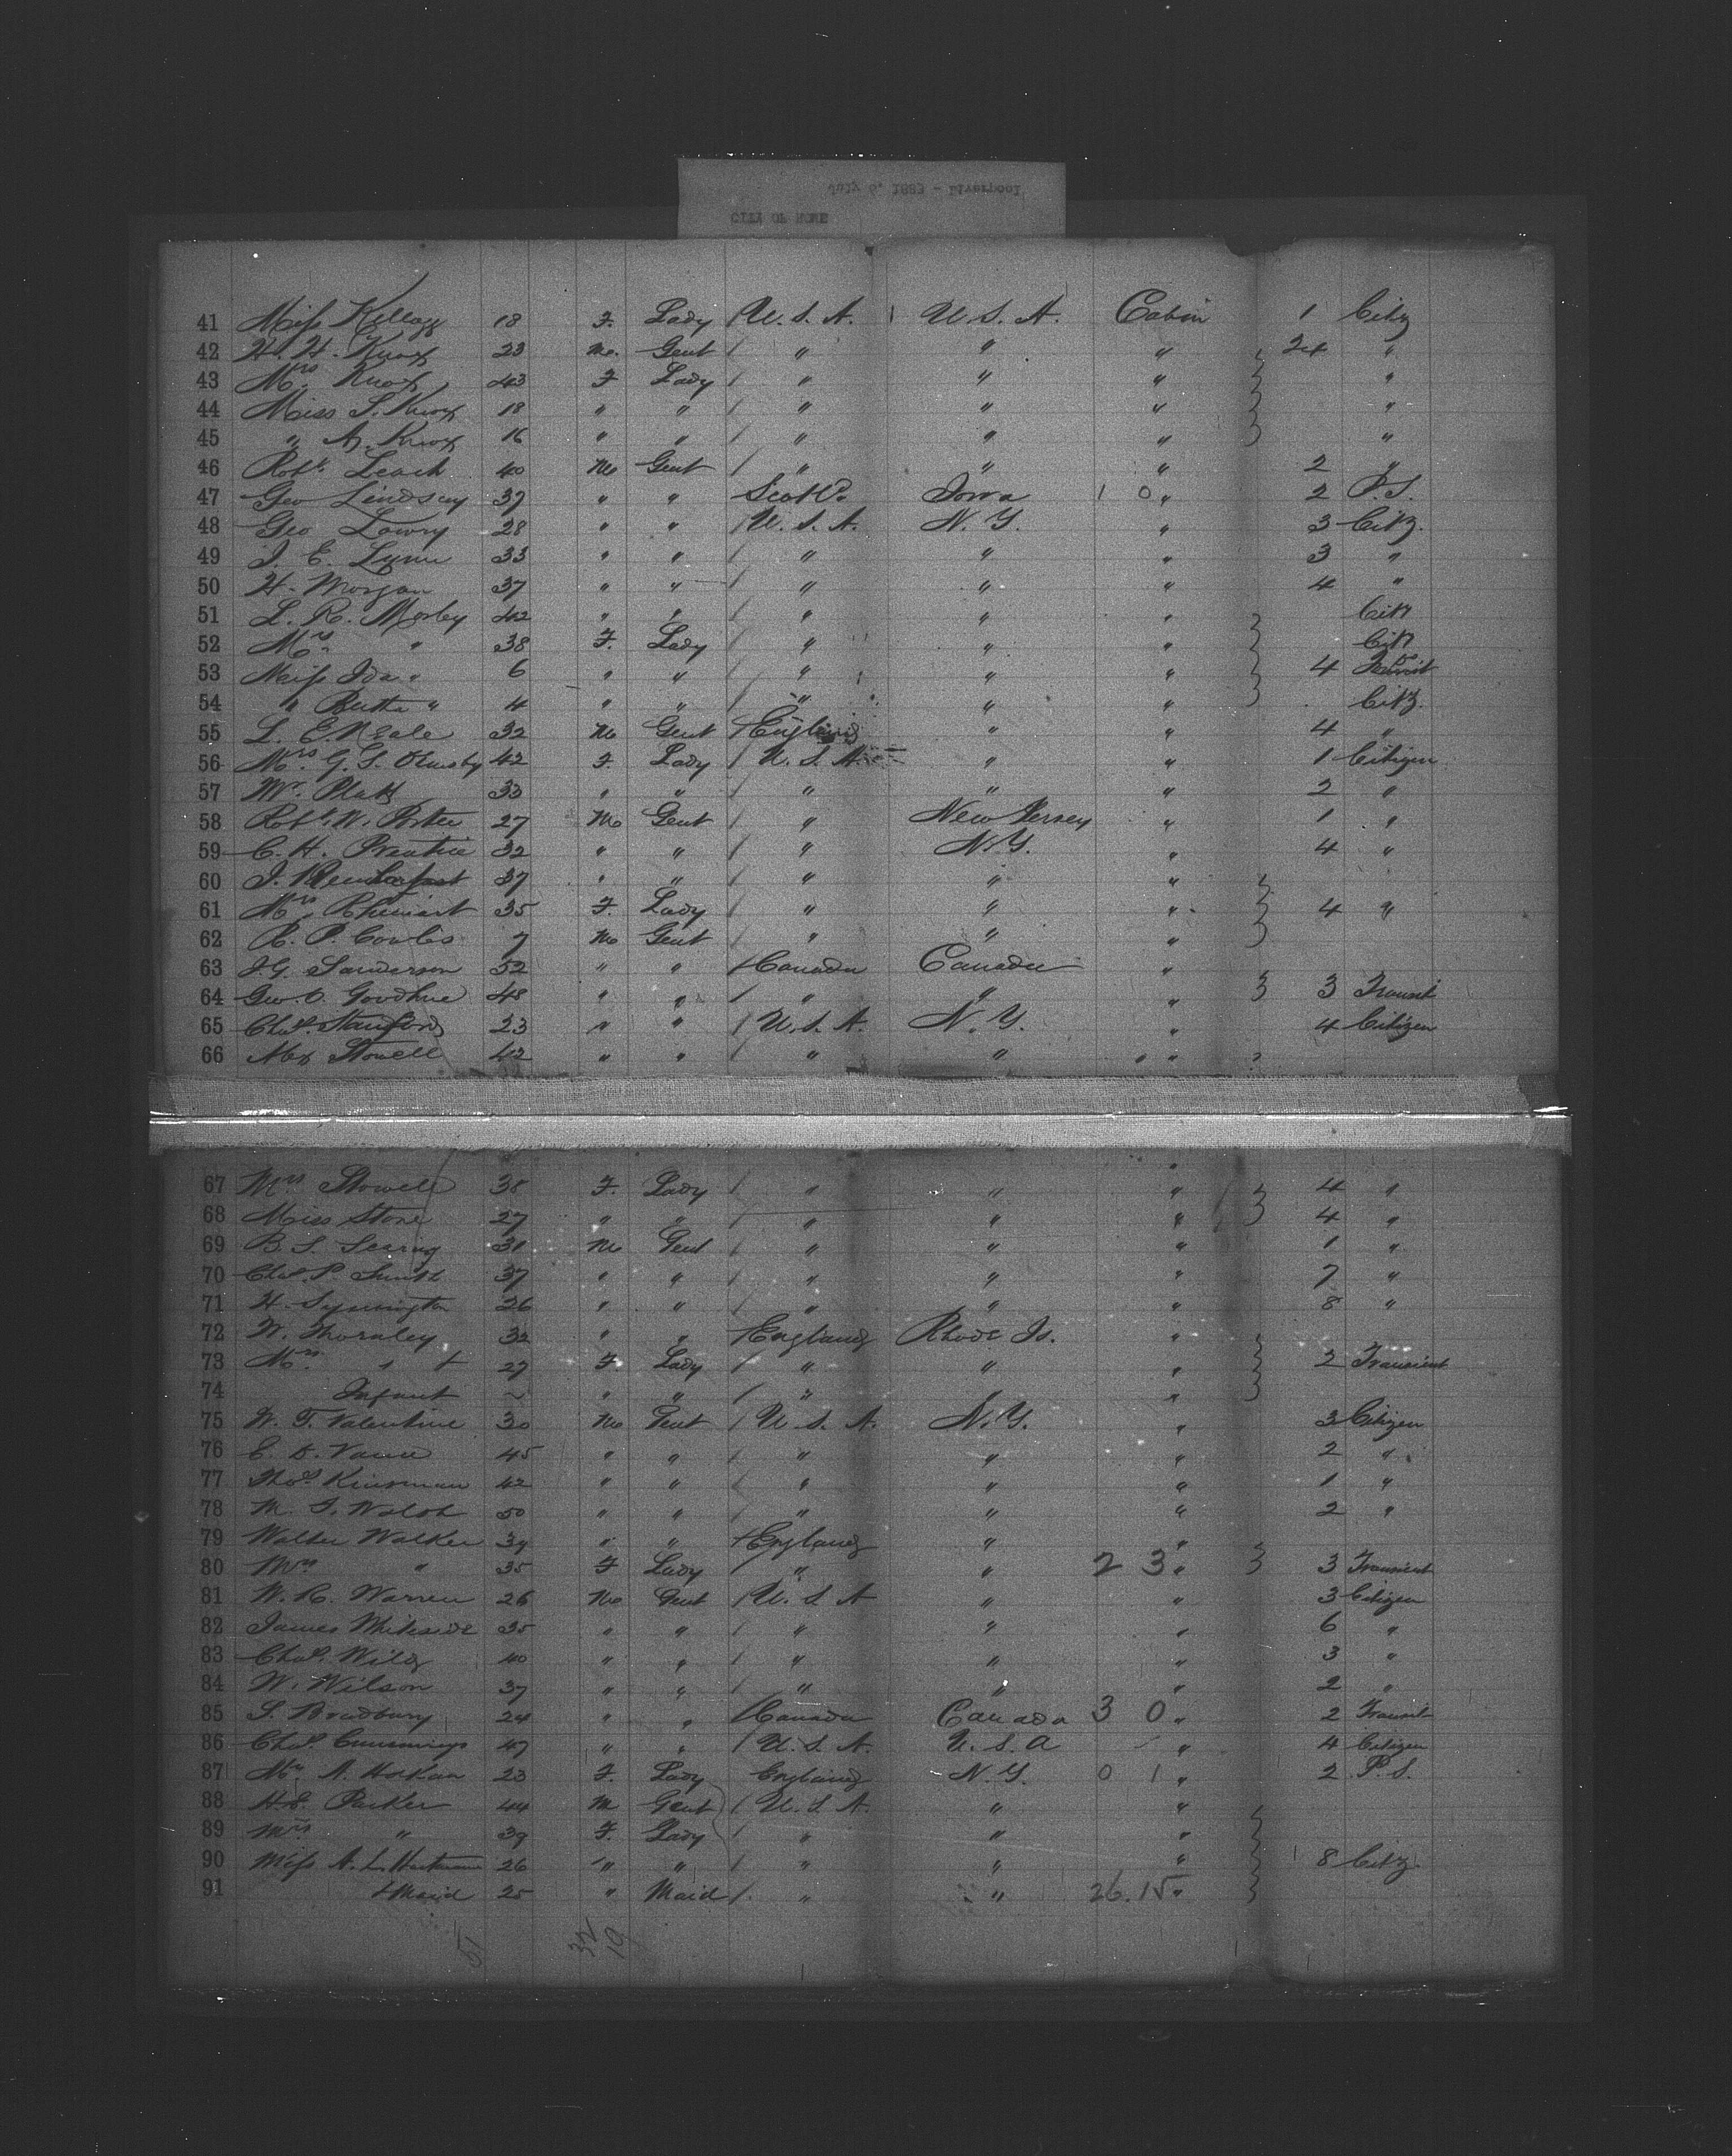 July 6, 1883 - Liverpool
CITY OF ROME
41 Miss Kellogg 18 F. Lady U. S. A. U. S. A. Cabin 1 Citz
42 H. H. Knox 23 M. Gent " " " 24 "
43 Mrs Knox 43 F Lady " " " "
44 Miss S. Knox 18 " " " " " "
45 " A. Knox 16 " " " " " "
46 Robt. Leach 40 M Gent " " " 2 "
47 Geo Lindsay 37 " " Scotld. Iowa 1 0 " 2 P.S.
48 Geo Lowry 28 " " U. S. A. N. Y. " 3 Citz.
49 J. E. Lynn 33 " " " " " 3 "
50 H. Morgan 37 " " " " " 4 "
51 L. R. Morley 42 " " " " " Citz
52 Mrs " 38 F. Lady " " " Citz
53 Miss Ida " 6 " " " " " 4
54 " Bertha " 4 " " " " " Citz.
55 L. E. Neale 32 M Gent England " " 4 "
56 Mrs G. S. Olmsby 42 F. Lady U. S. A. " " 1 Citizen
57 Platt 33 " " " " " 2 "
58 Robt. W. Porter 27 M Gent " New Jersey " 1 "
59 C. H. Prentice 32 " " " N. Y. " 4 "
60 J. 37 " " " " "
61 Mrs Rheinart 35 F. Lady " " " 4 "
62 R. P. Cowles 7 M Gent " " "
63 J. G. Sanderson 52 " " Canada Canada "
64 Geo. O. Goodhue 48 " " " " " 3 Transit
65 Chas. Stanford 23 " " U. S. A. N. Y. " 4 Citizen
66 Alex Stowell 42 " " " " "
67 Mrs Stowell 38 F. Lady " " " 4 "
68 Miss Stone 27 " " " " " 4 "
69 B. S. Searing 31 M Gent " " " 1 "
70 Chas. P. Smith 37 " " " " " 7 "
71 H. Symington 26 " " " " " 8 "
72 W. Thornley 32 " " England Rhode Is. "
73 Mrs " + 27 F. Lady " " " 2 Transient
74 Infant ~ " " " " "
75 W. T. Valentine 30 M Gent U. S. A. N. Y. " 3 Citizen
76 E. D. Vance 45 " " " " " 2 "
77 Thos Kinsman 42 " " " " " 1 "
78 M. J. Walsh 50 " " " " " 2 "
79 Walter Walker 39 " " England " "
80 Mrs " 35 F Lady " " 2 3 " 3 Transient
81 W. R. Warren 26 M Gent U. S. A " " 3 Citizen
82 James Whiteside 35 " " " " " 6 "
83 Chas. Wild 40 " " " " " 3 "
84 W. Wilson 37 " " " " " 2 "
85 S. Bradbury 24 " " Canada Canada 3 0 " 2 Transit
86 Chas. Cummings 47 " " U. S. A. U. S. A " 4 Citizen
87 A. 23 F. Lady England N. Y. 0 1 " 2 P. S.
88 H. S. Parker 44 M Gent U. S. A. " "
89 Mrs " 39 F. Lady " " "
90 Miss A. L. Hartmann 26 " " " " " 8 Citz.
91 + Maid 25 " Maid " " 26.15 "
51 32 19